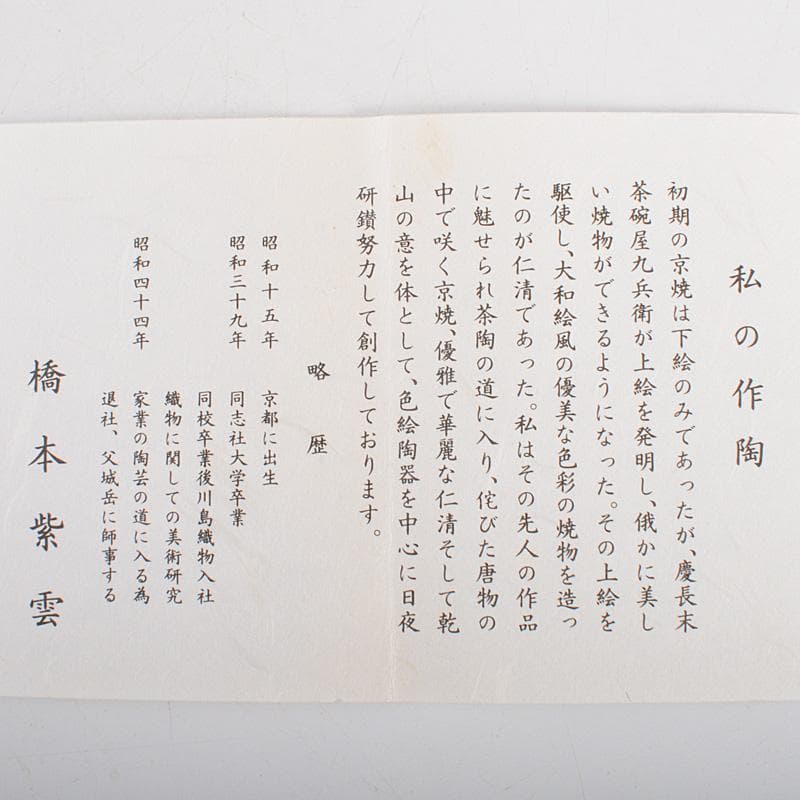 私の作陶
初期の京焼は下絵のみであったが、慶長末
茶碗屋九兵衛が上絵を発明し、俄かに美し
い焼物ができるようになった。その上絵を
駆使し、大和絵風の優美な色彩の焼物を造っ
たのが仁清であった。私はその先人の作品
に魅せられ茶陶の道に入り、侘びた唐物の
中で咲く京焼、優雅で華麗な仁清そして乾
山の意を体として、色絵陶器を中心に日夜
研鑚努力して創作しております。
略歴
昭和十五年 京都に出生
昭和三十九年 同志社大学卒業
同校卒業後川島織物入社
織物に関しての美術研究
昭和四十四年 家業の陶芸の道に入る為
退社、父城岳に師事する
橋本紫雲